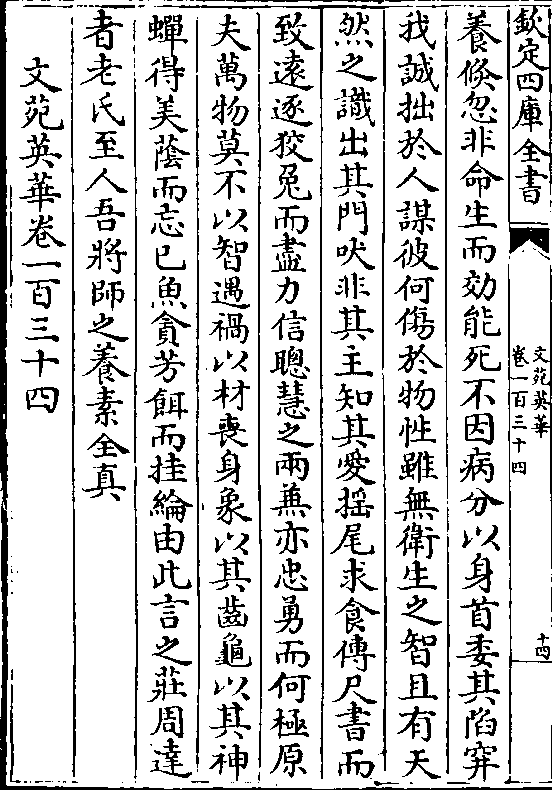 欽定四庫全書
文苑英華
卷一百三十四
十四
養倐忽非命生而効能死不因病分以身首委其陷穽
我誠拙於人謀彼何傷於物性雖無衛生之智且有天
然之識出其門吠非其主知其愛揺尾求食傳尺書而
致遠逐狡兎而盡力信聰慧之兩兼亦忠勇而何極原
夫萬物莫不以智遇禍以材喪身象以其齒龜以其神
蟬得美蔭而忘已魚貪芳餌而挂綸由此言之莊周達
者老氏至人吾將師之養素全真
文苑英華卷一百三十四